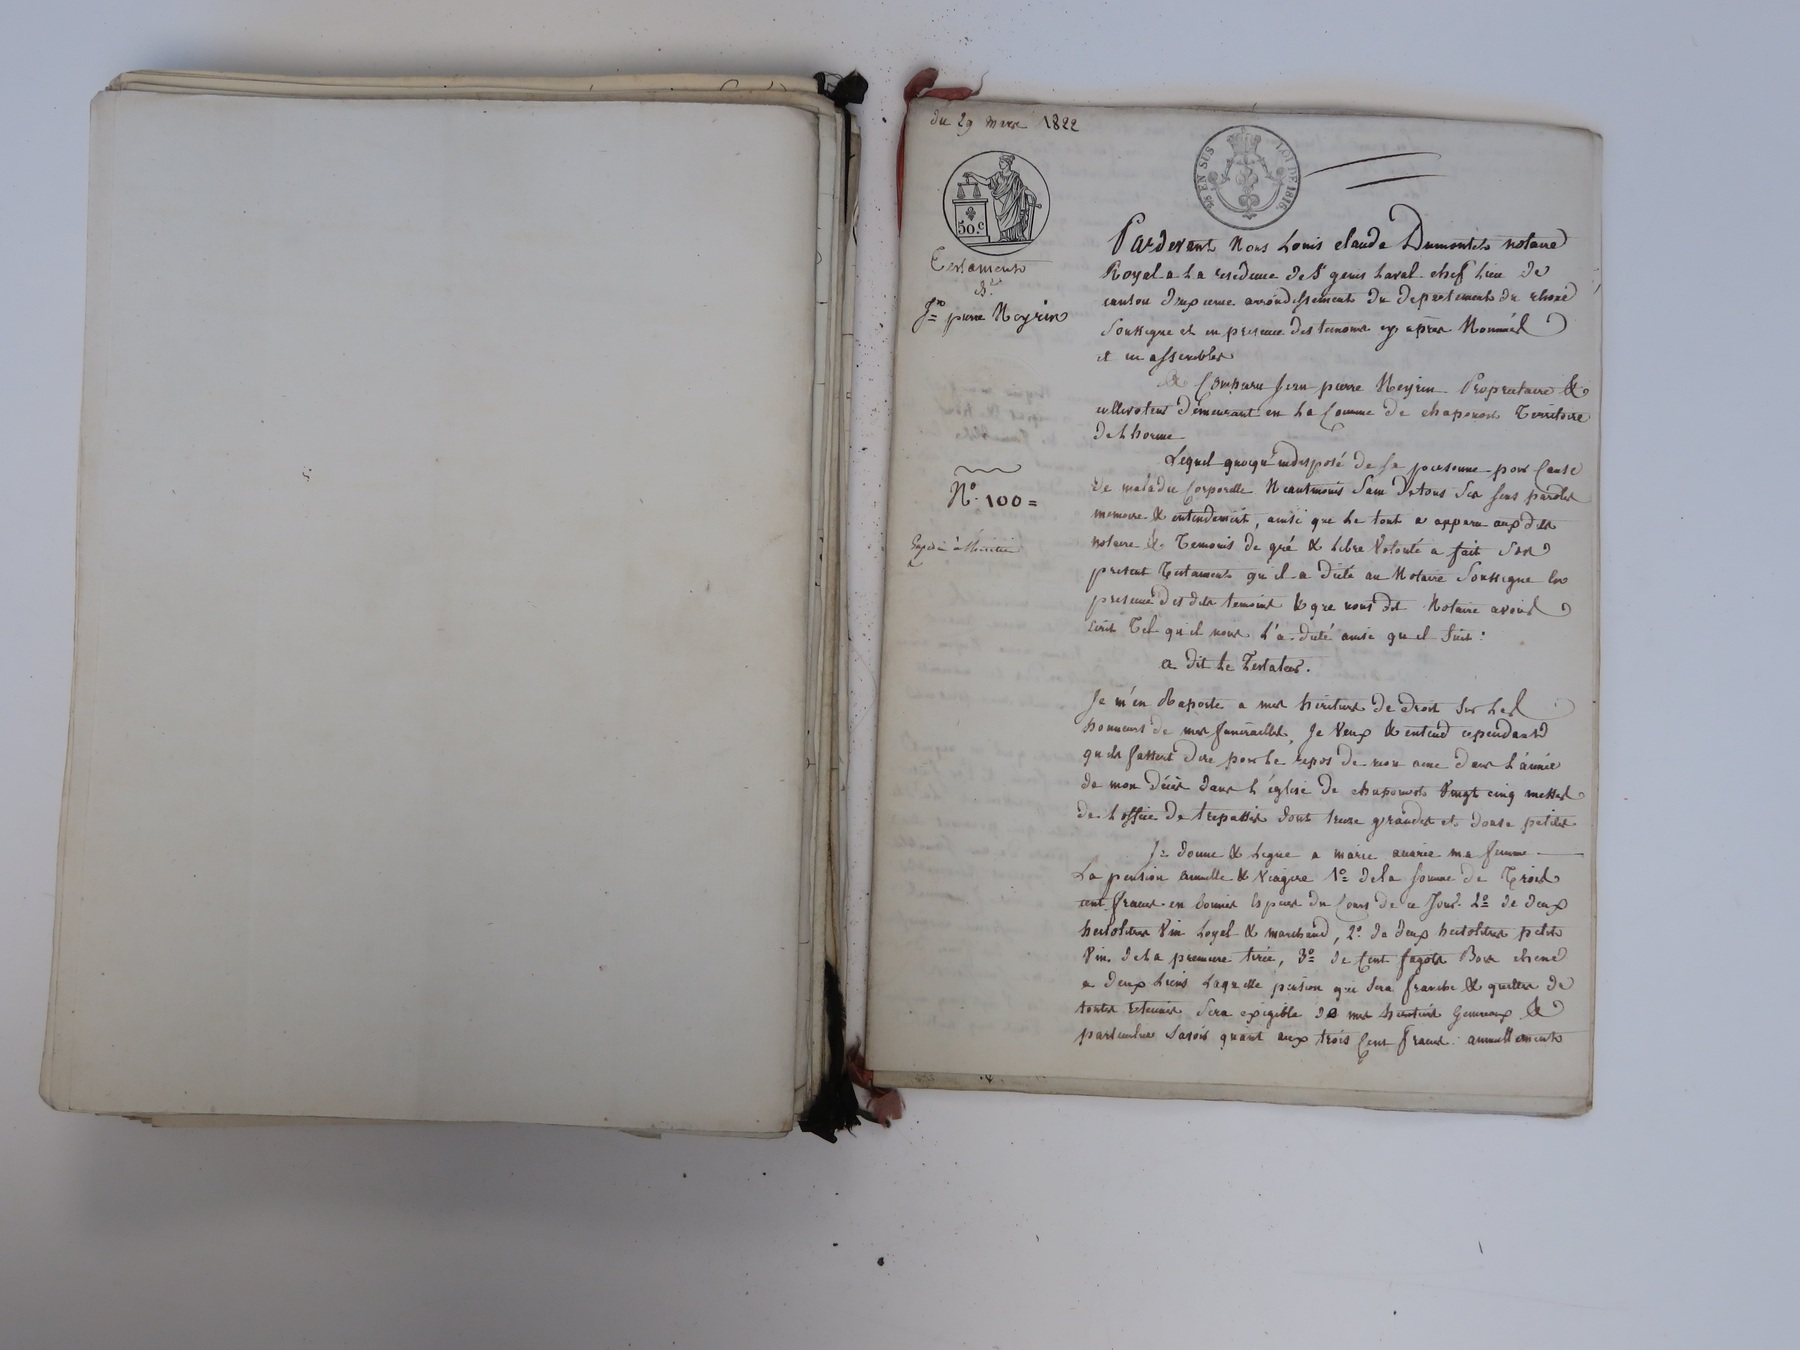 du 29 mars 1822
50.c
25 EN SUS LOI DE 1816.
Testament
de
Jn pierre Neyrin
N.o 100 =
Pardevant Nous Louis claude Dumontet notaire
Royal a La residence de St genis Laval chef Lieu de
canton deuxieme arrondissement du departement du rhone
soussigné et en presence des temoins cy après Nommés
et en assemblés
a Comparu Jean pierre Neyrin Propriétaire &
cultivateur demeurant en La Commune de chaponost Territoire
de Lhorme
Lequel quoiqu'indisposé de sa personne par Cause
de maladie Corporelle Neantmoins Sain de tous Ses sens parole
memoire & entendement, ainsi que Le tout a apparu aux dits
notaire & Temoins de gré & Libre Volonté a fait son
present Testament qu'il a dicté au Notaire soussigné En
presence des dits temoins & que nous dit Notaire avons
écrit Tel qu'il nous L'a dicté ainsi qu'il suit :
a dit Le Testateur.
Je m'en Raporte a mes héritiers de droit sur Les
honneurs de mes funérailles, Je Veux & entend cependant
qu'ils fassent dire pour Le repos de mon ame dans L'année
de mon décès dans L'église de chaponost Vingt cinq messes
de L'office de trepassés dont treize grandes et douze petites
Je donne & Legue a marie ma femme
La pension annuelle & Viagere 1o de la somme de Trois
cent francs en bonnes Espèces du Cours de ce Jour 2o de deux
hectolitres Vin Loyal & marchand, 2o de deux hectolitres petit
Vin de La premiere tirée, 3o de Cent fagots Bois chene
a deux Liens Laquelle pension qui sera franche & quitte de
toutes retenues sera exigible de mes heritiers Generaux &
particuliers savoir quant aux trois Cent francs annuellement